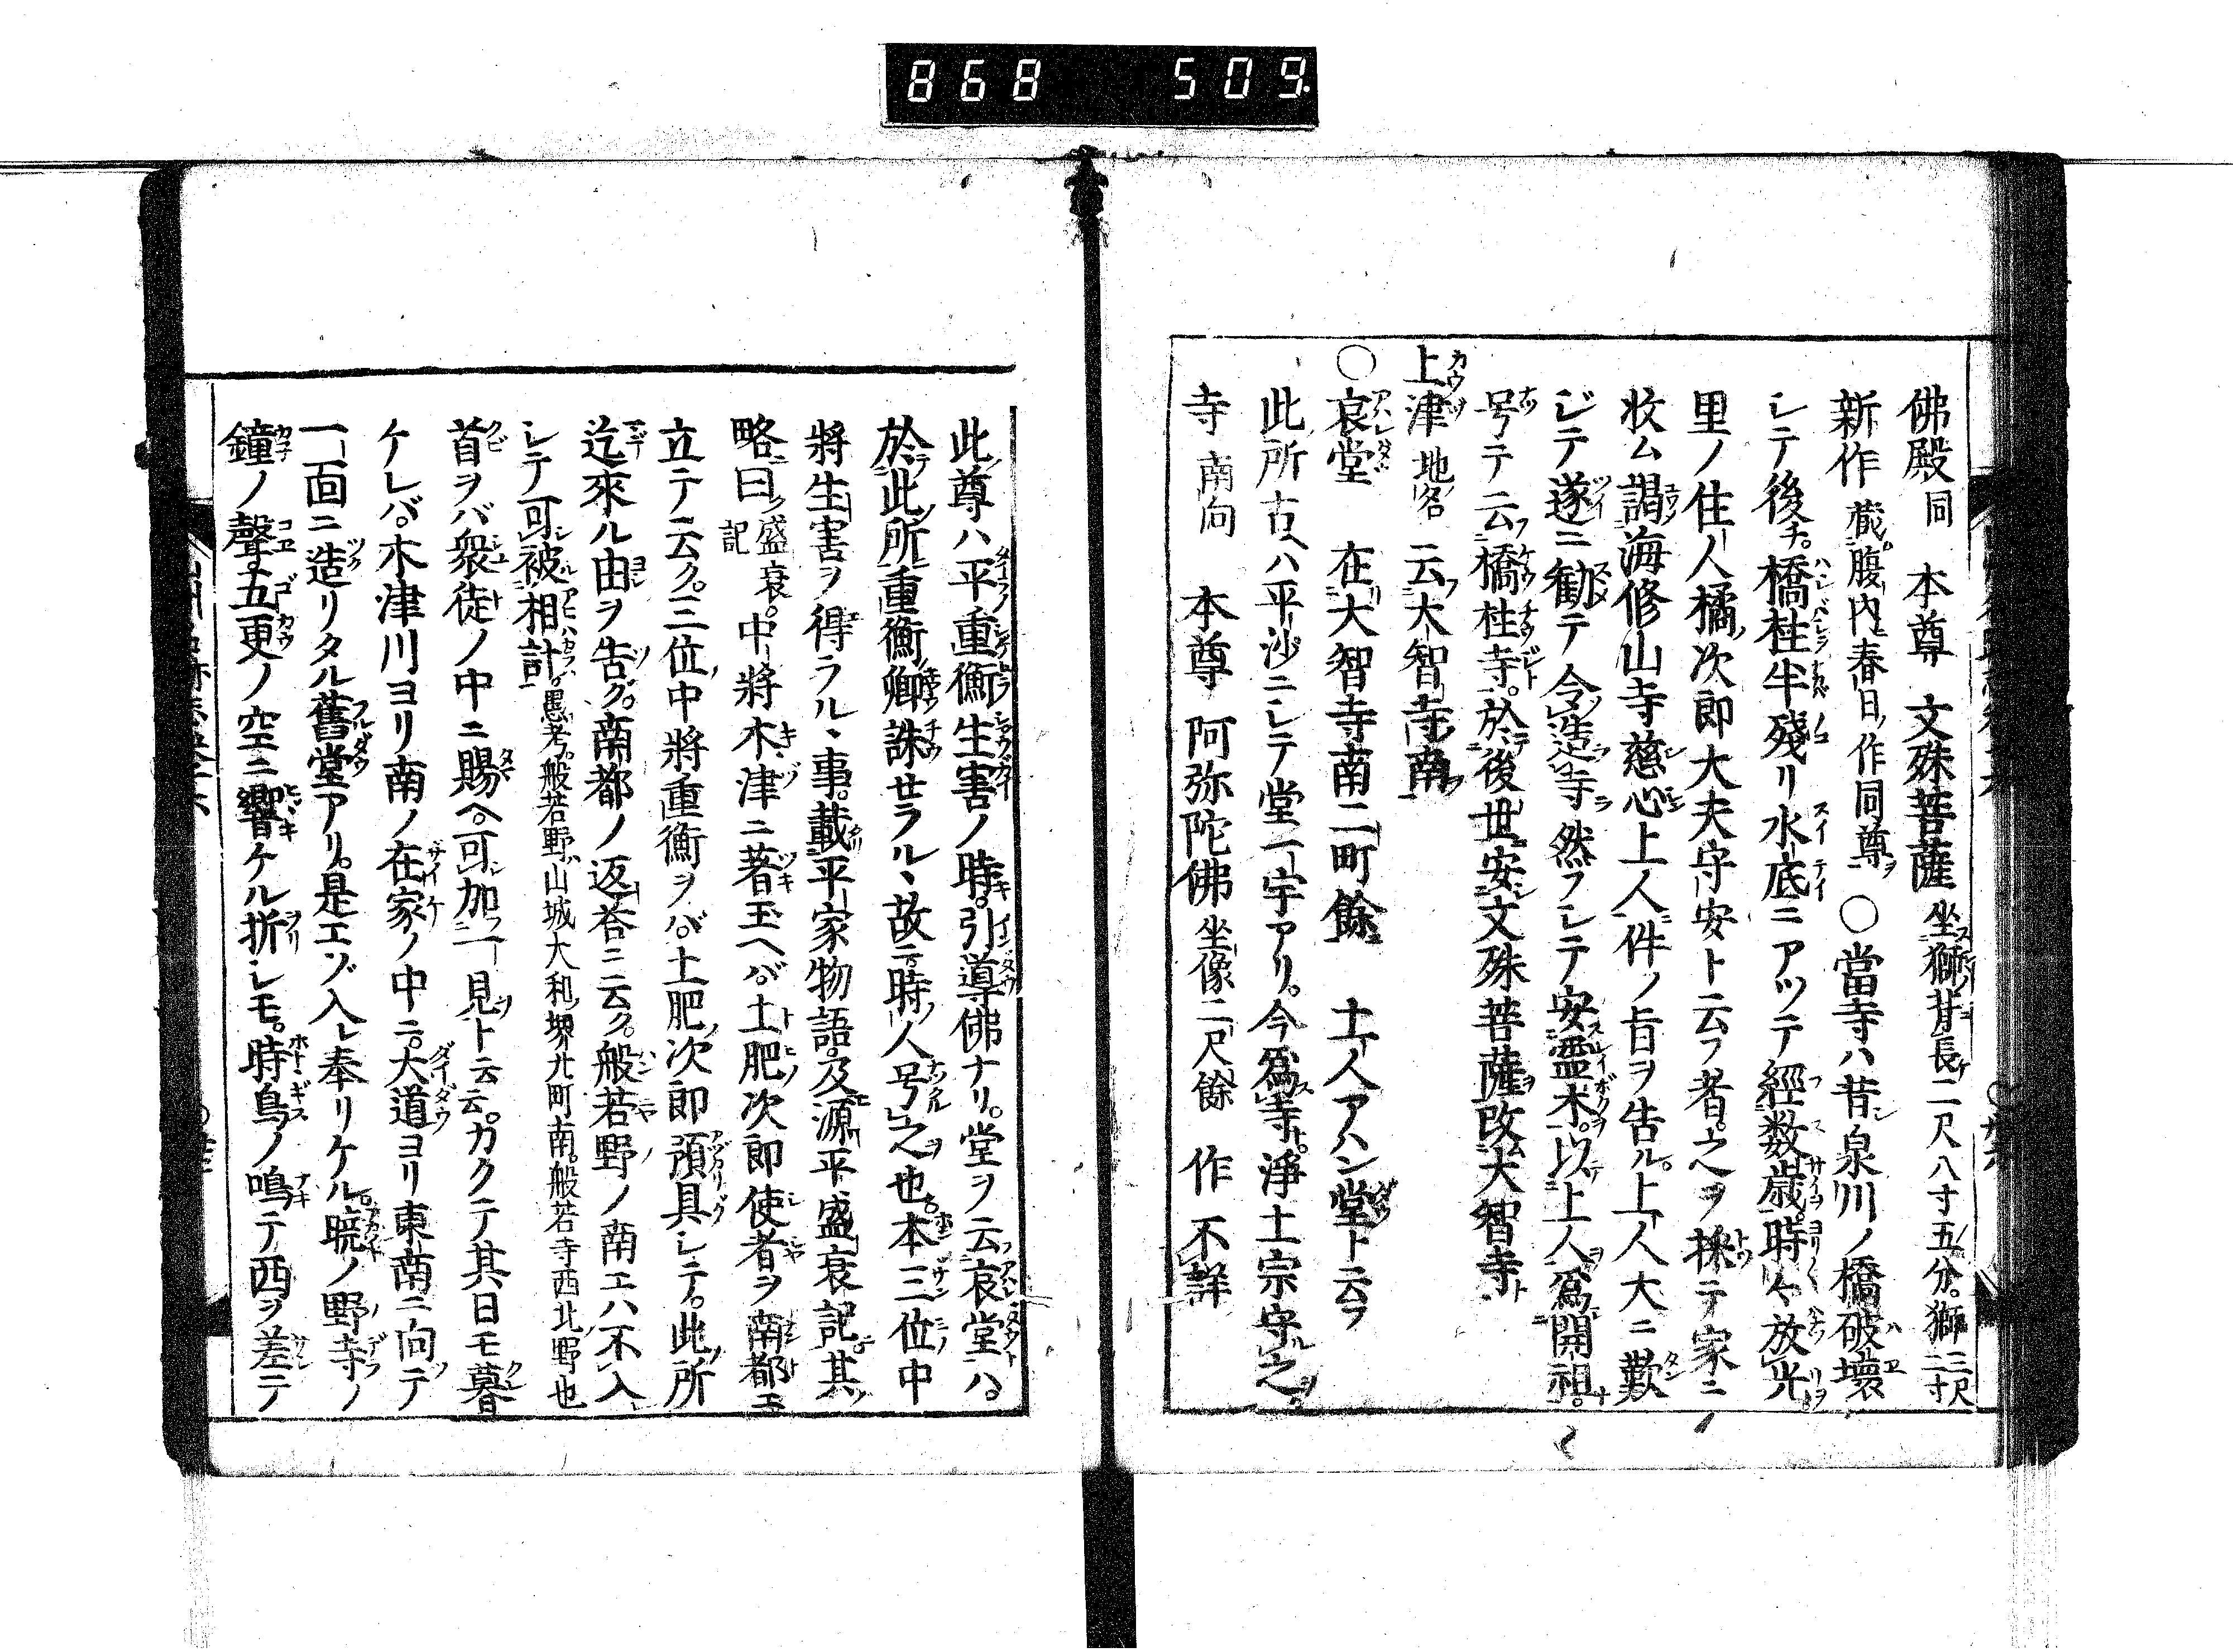 868 509.
佛殿同 本尊 文殊菩薩 坐獅背長二尺八寸五分。獅三尺二寸
新作 蔵腹内春日作同尊 ○當寺ハ昔シ泉川ノ橋破壊
シテ後チ。橋柱半殘リ水底ニアツテ經数歳時々放光
里ノ住人橘次郎大夫守安ト云フ者。之ヲ採テ家ニ
牧ム謁海修山寺慈心上人件ノ旨ヲ告ル。上人大ニ歎
ジテ遂ニ勧テ令造寺ヲ然フシテ安霊木。以上人爲開祖。
号テ云橋柱寺。於後世安文殊菩薩改大智寺
上津 地名 云大智寺南
○哀堂 在大智寺南二町餘 土人アハン堂ト云フ
此所古ヘハ平沙ニシテ堂一宇アリ。今爲寺。淨土宗守之。
寺 南向 本尊 阿弥陀佛 坐像二尺餘 作不詳
此尊ハ平重衡生害ノ時。引導佛ナリ。堂ヲ云哀堂ハ。
於此所重衡卿誅セラル、故ニ時人号之也。本三位中
將生害ヲ得ラル、事。載平家物語。及源平盛衰記。其
略曰 盛衰記 中將木津ニ著玉ヘバ。土肥次郎使者ヲ南都エ
立テ云ク。三位中將重衡ヲバ。上肥次郎預具シテ。此所
迄來ル由ヲ告グ。南都ノ返荅ニ云ク。般若野ノ南エハ不入
シテ可被相計。愚考。般若野ハ山城大和堺九町南。般若寺西北野也
首ヲバ衆徒ノ中ニ賜ヘ。可加一見ト云云。カクテ其日モ暮
ケレバ。木津川ヨリ南ノ在家ノ中ニ。大道ヨリ東南ニ向テ
一面ニ造リタル舊堂アリ。是エゾ入レ奉リケル。暁ノ野寺ノ
鐘ノ聲。五更ノ空ニ響ケル折シモ。時鳥ノ鳴テ西ヲ差テ